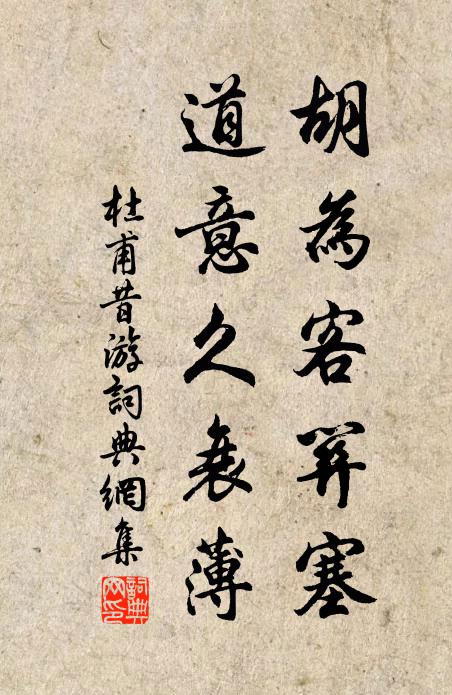 胡為客關塞
道意久衰薄
杜甫昔游詞典網集
詞典
网印